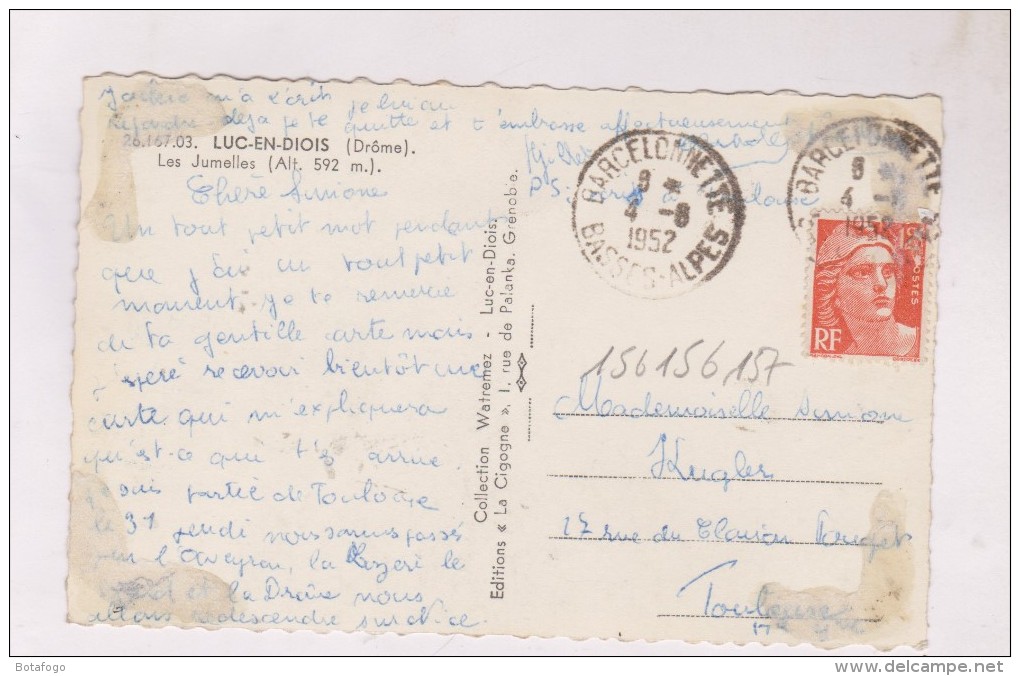 je
déjà je te quitte et t'embrasse affectueusement
26.167.03. LUC-EN-DIOIS (Drôme).
Les Jumelles (Alt. 592 m.).
P S
Chère Simone
Un tout petit mot pendant
que j'ai un tout petit
moment. je te remercie
de ta gentille carte mais
j'espère recevoir bientôt une
carte qui m'expliquera
qu'est-ce que t'es arrivé.
je suis partie de Toulouse
le 31 jeudi nous sommes passés
par l'Aveyron, la Lozère le
et la Drôme nous
allons redescendre sur Nice.
Collection Watremez - Luc-en-Diois.
Editions « La Cigogne », 1, rue de Palanka. Grenoble.
BARCELONNETTE
8 *
4 -8
1952
BASSES-ALPES
BARCELONNETTE
8 *
4
1952
15F
POSTES
RF
156156,157
Mademoiselle Simone
Kugler
27 rue du
Toulouse
Botafogo
www.delcampe.net